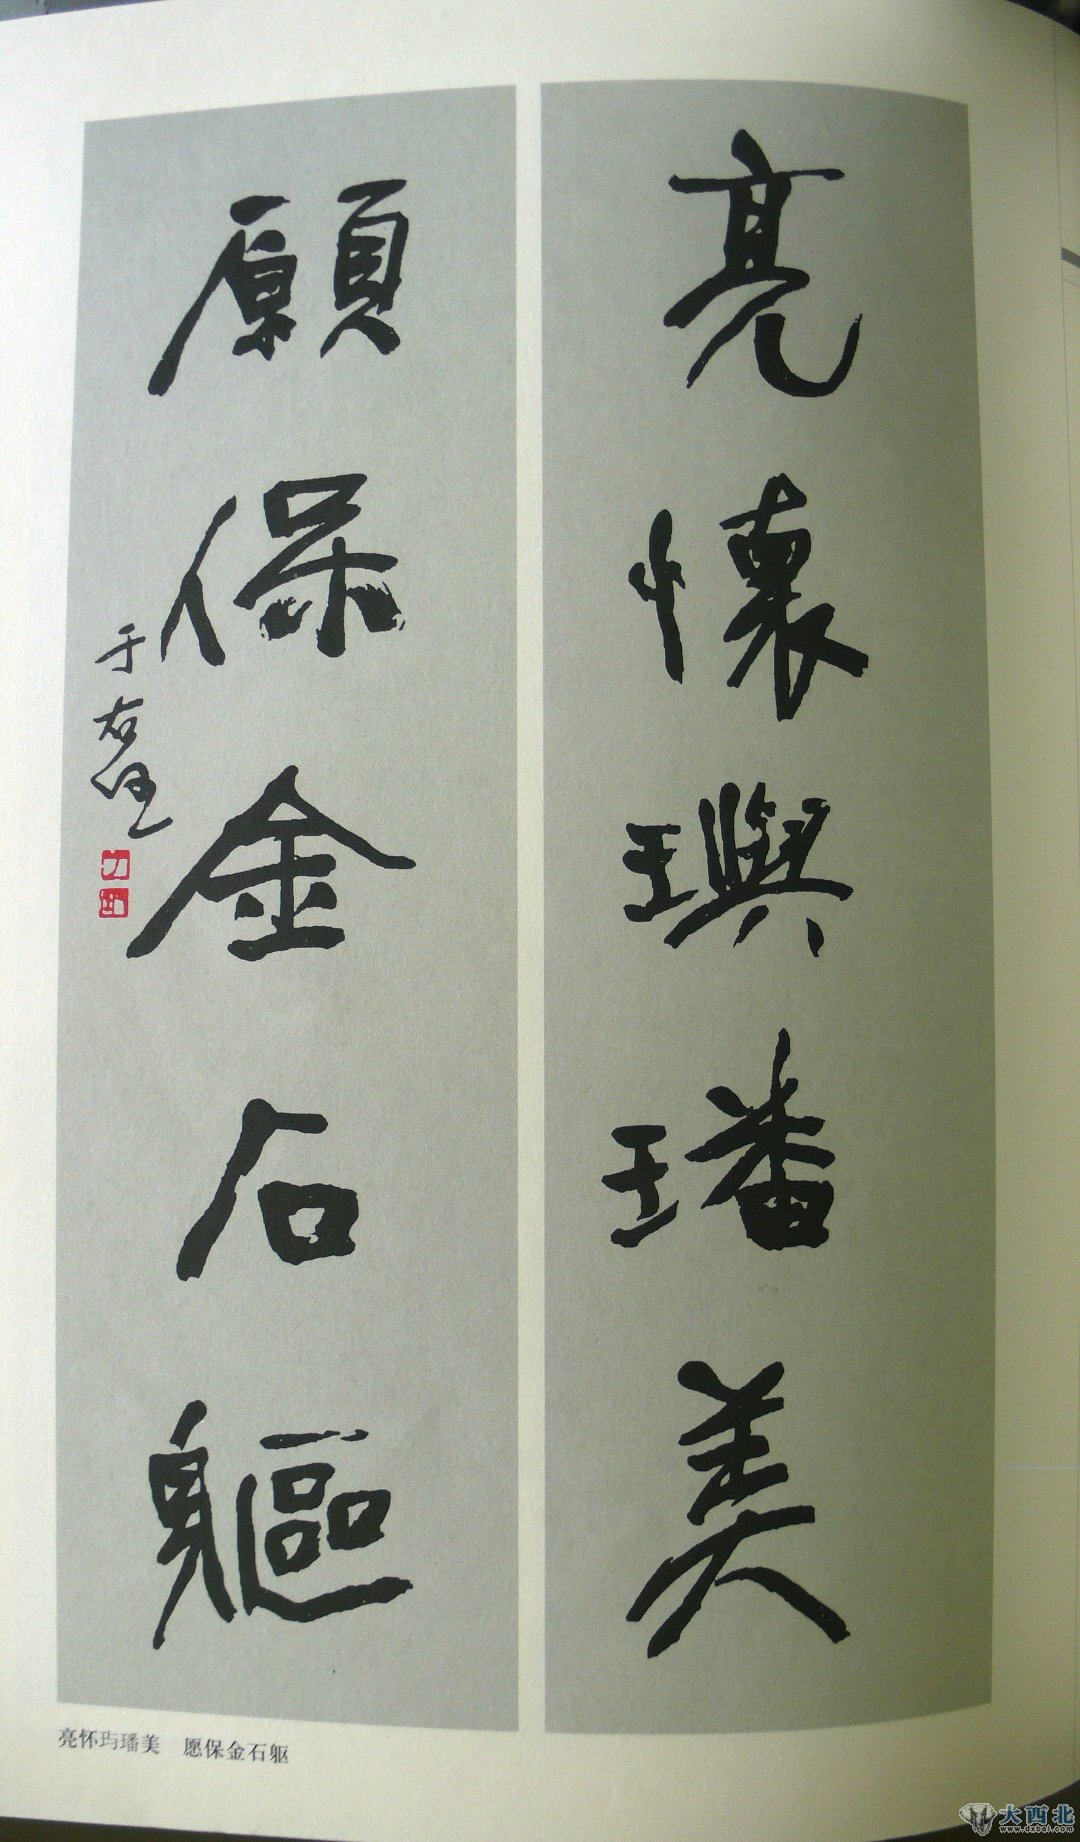 亮懷璵璠美
願保金石軀
于右任
亮怀玙璠美　愿保金石躯
大西北
www.dxbei.com